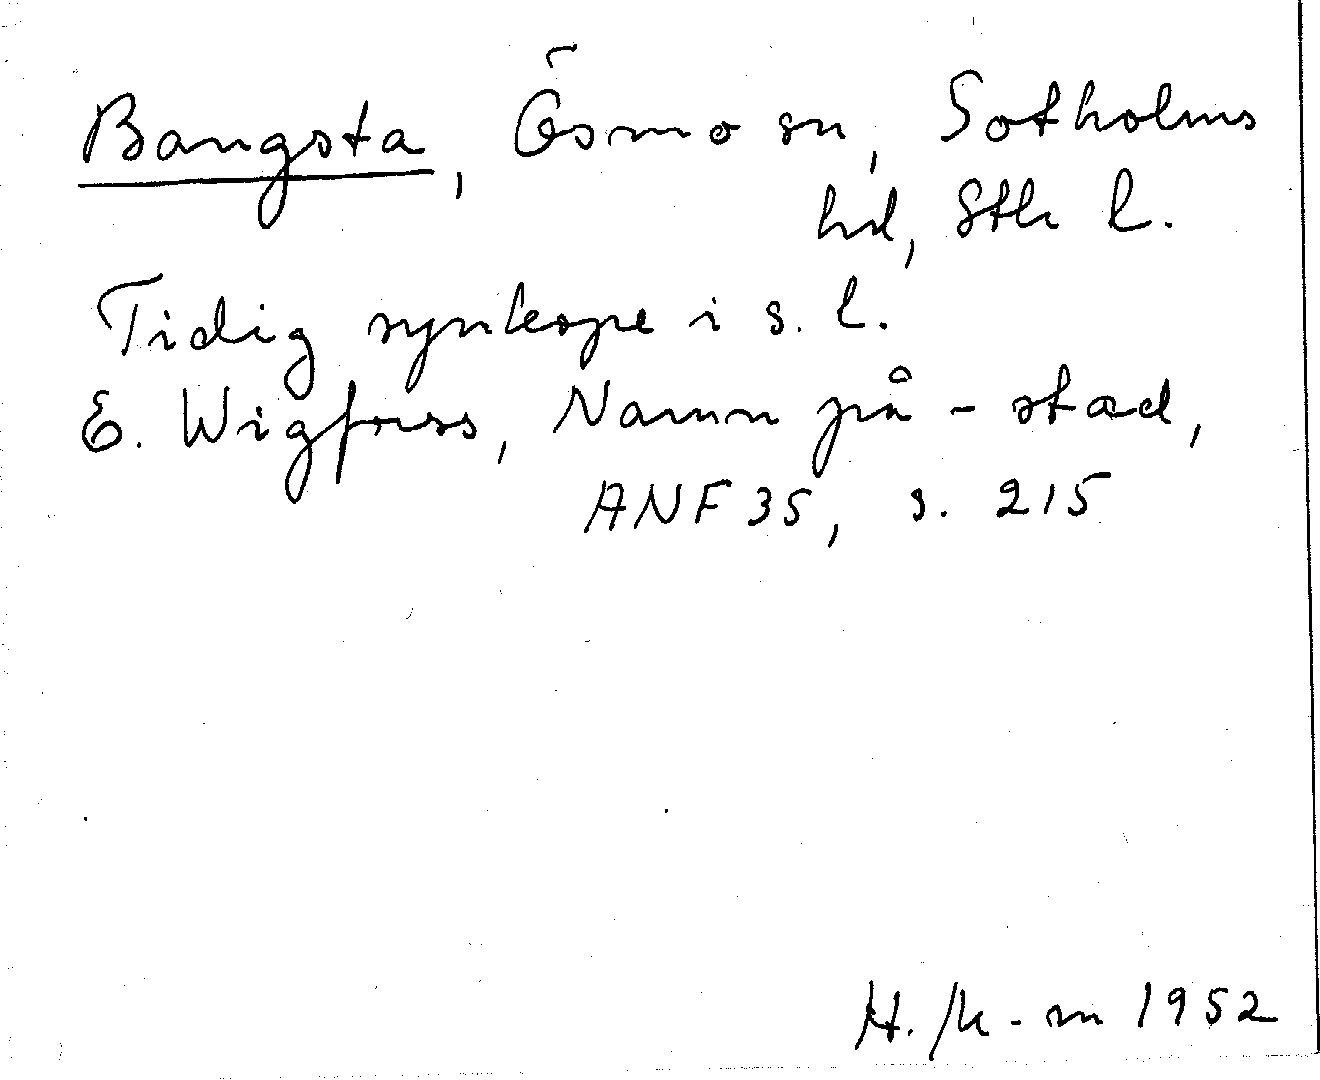 Bangsta, Ösmo sn, Sotholms
hd, Sthl l.
Tidig synkope i s. l.
E. Wigforss, Namn på -stad,
ANF 35, s. 215
H. K-m 1952